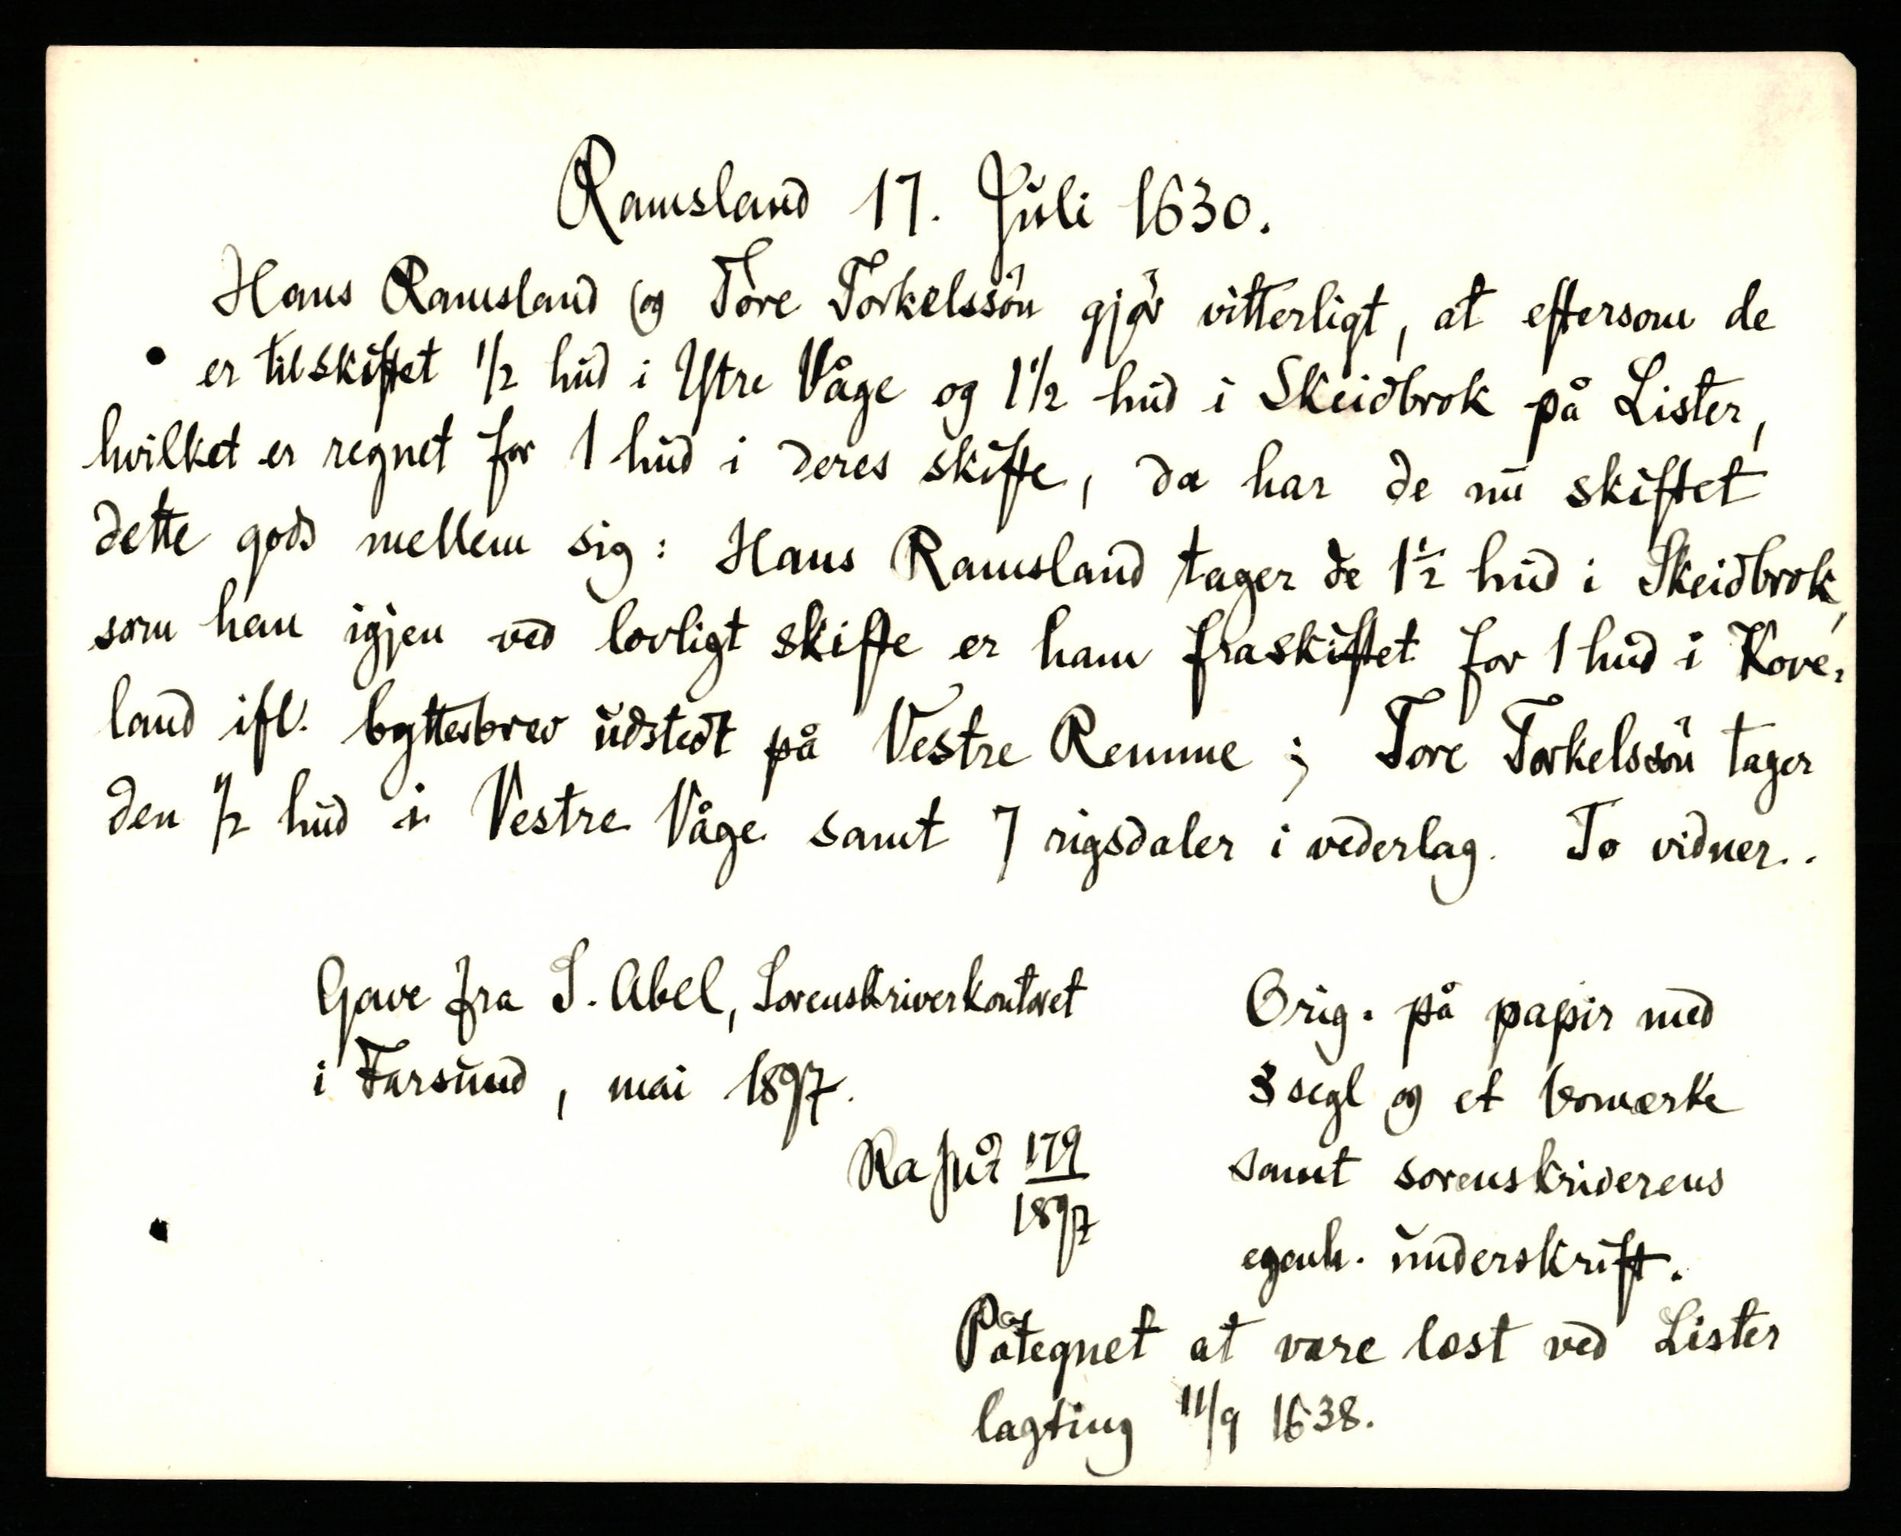 Ramsland 17. Juli 1630.
Hans Ramsland og Tore Torkelssön gjör vitterligt, at eftersom de
er tilskiftet 1/2 hud i Ytre Våge og 1 1/2 hud i Skeidbrok på Lister,
hvilket er regnet for 1 hud i deres skifte, da har de nu skiftet
dette gods mellem sig: Hans Ramsland tager de 1 1/2 hud i Skeidbrok,
som han igjen ved lovligt skifte er ham fraskiftet for 1 hud i Kove-
land ifl. byttesbrev udstedt på Vestre Remme; Tore Torkelssön tager
den 1/2 hud i Vestre Våge samt 7 rigsdaler i vederlag. To vidner.
Gave fra S. Abel, Sorenskriverkontoret
i Farsund, mai 1897.
Ra jnr 179/1897
Orig. på papir med
3 segl og et bomærke
samt sorenskriverens
egenh. underskrift.
Påtegnet at være læst ved Lister
lagting 11/9 1638.